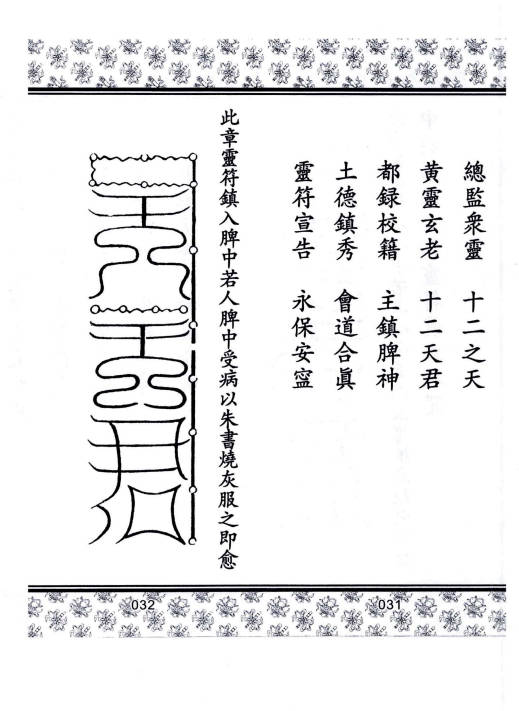 總監衆靈 十二之天
黃靈玄老 十二天君
都録校籍 主鎮脾神
土德鎮秀 會道合眞
靈符宣告 永保安寍
此章靈符鎮入脾中若人脾中受病以朱書燒灰服之即愈
032
031